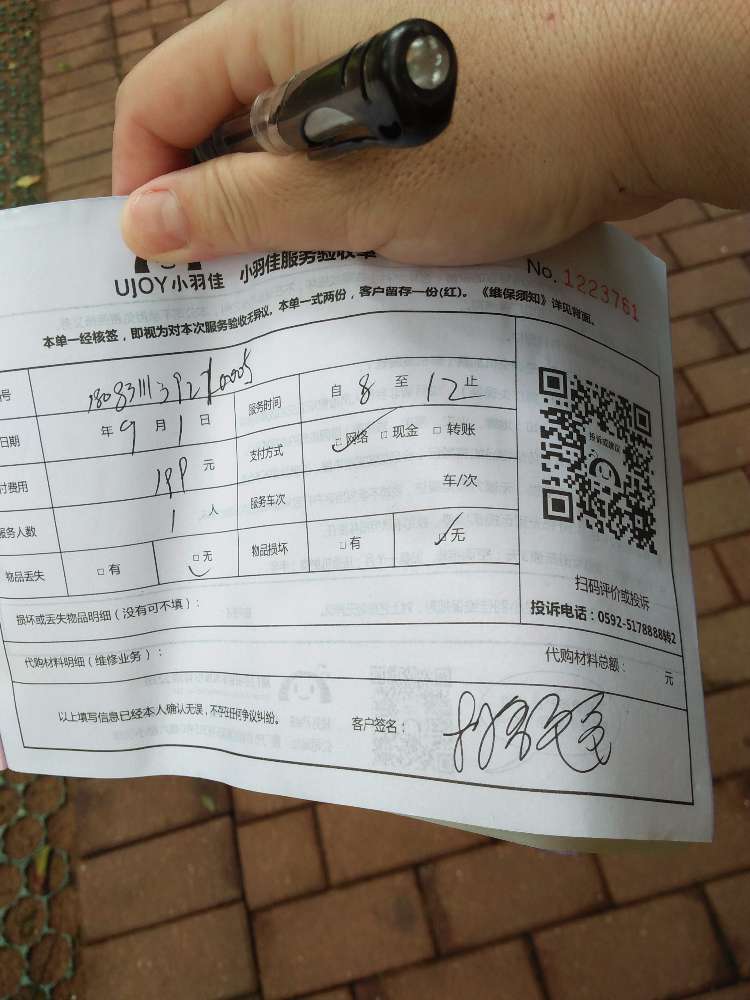 UJOY小羽佳 小羽佳服务验收单
No. 1223761
本单一经核签，即视为对本次服务验收无异议。本单一式两份，客户留存一份(红)。《维保须知》详见背面。
号 服务时间 自 8 至 12 止
日期 年 9 月 1 日 支付方式 □网络 □现金 □转账
付费用 199 元 服务车次 车/次
服务人数 1 人
物品丢失 □有 □无 物品损坏 □有 □无
投诉或建议
扫码评价或投诉
投诉电话：0592-5178888转2
损坏或丢失物品明细（没有可不填）：
代购材料明细（维修业务）： 代购材料总额： 元
以上填写信息已经本人确认无误，不存在任何争议纠纷。 客户签名：